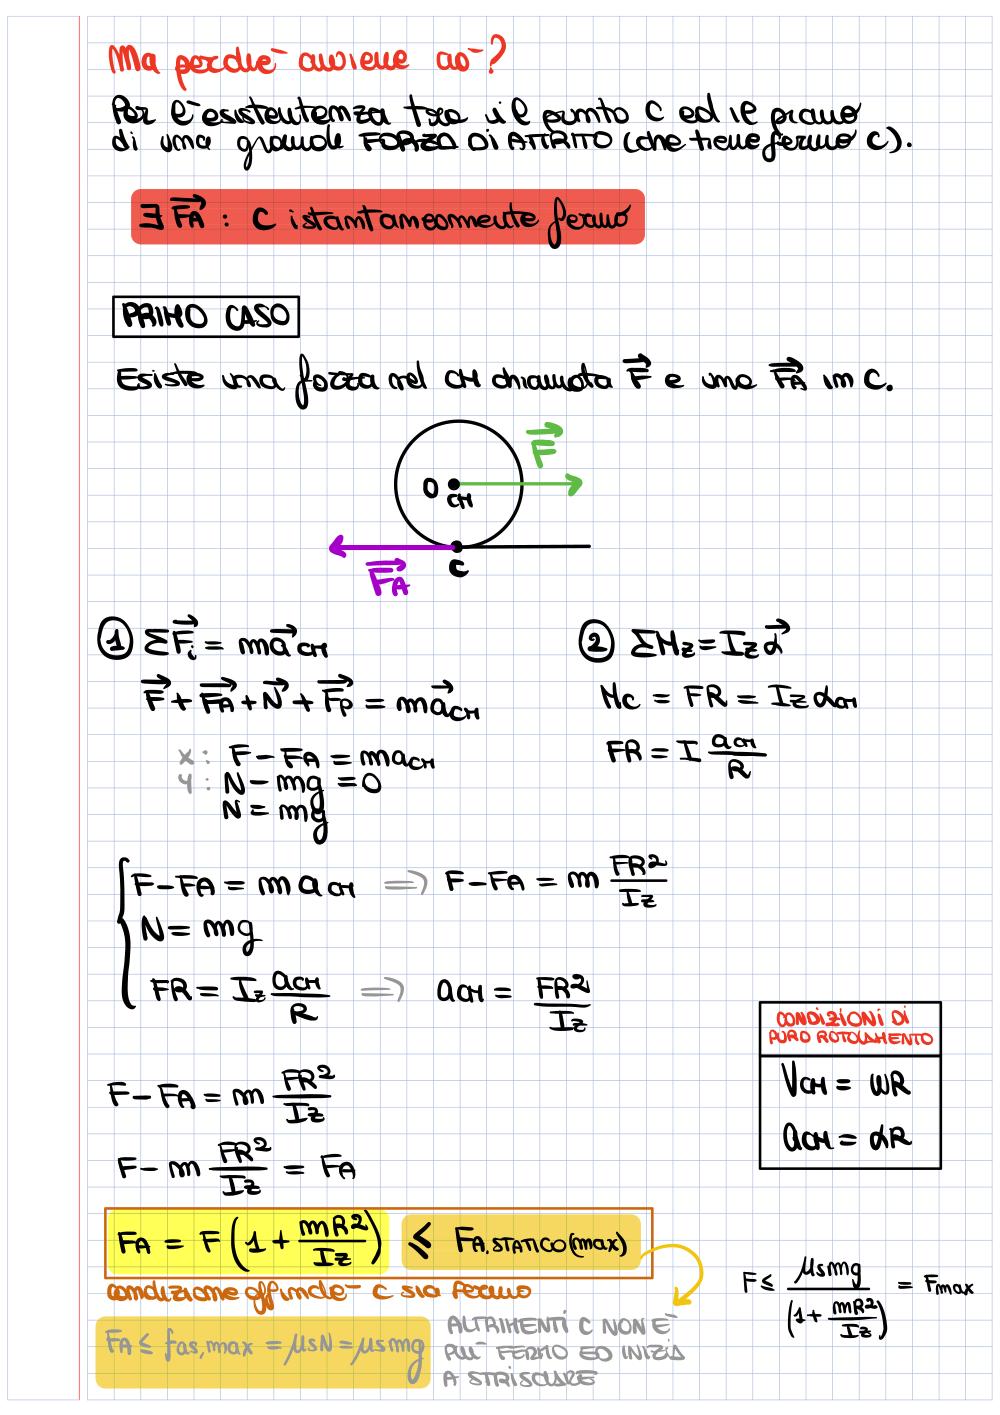 Ma perché avviene ciò?
Per l'esistentenza tra il punto C ed il piano
di una grande FORZA DI ATTRITO (che tiene fermo C).
∃ F⃗A : C istantaneamente fermo
PRIMO CASO
Esiste una forza nel CM chiamata F⃗ e una F⃗A in C.
F⃗
O
CM
C
F⃗A
① ΣF⃗i = ma⃗CM
F⃗ + F⃗A + N⃗ + F⃗p = ma⃗CM
x: F - FA = maCM
y: N - mg = 0
N = mg
② ΣMz = Iz α⃗
Mc = FR = Iz αCM
FR = I aCM/R
F - FA = m aCM ⇒ F - FA = m FR²/Iz
N = mg
FR = Iz aCM/R ⇒ aCM = FR²/Iz
CONDIZIONI DI
PURO ROTOLAMENTO
VCM = ωR
aCM = αR
F - FA = m FR²/Iz
F - m FR²/Iz = FA
FA = F (1 + mR²/Iz) ⩽ FA,STATICO(max)
condizione affinché C sia fermo
FA ≤ fas,max = μsN = μsmg
ALTRIMENTI C NON È
PIÙ FERMO ED INIZIA
A STRISCIARE
F ≤ μsmg/(1 + mR²/Iz) = Fmax